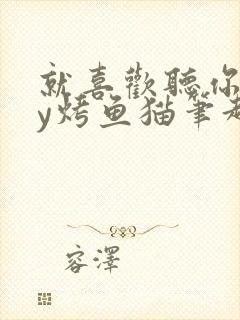 就喜歡聽你
y烤鱼猫筆趣
容澤